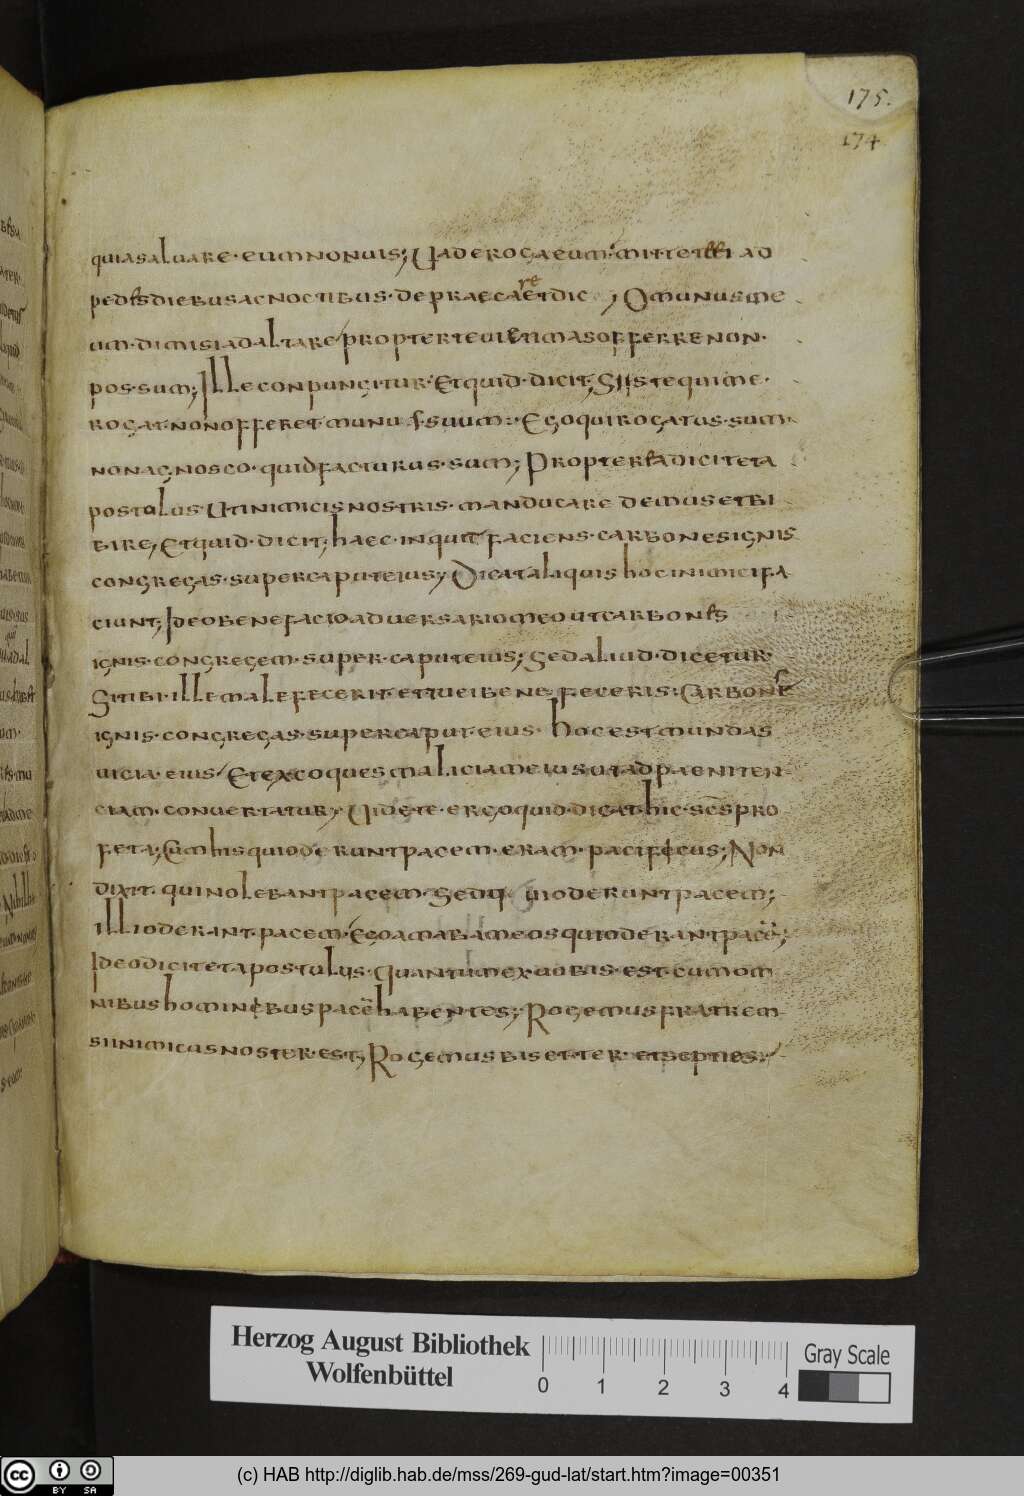 175.
174
quia saluare · eum non uis; Uade roga eum · mitte illi ad
pedes diebus ac noctibus · deprecare et dic; O munus me
um · dimisi ad altare propter te uictimas offerre non ·
possum; Ille conpungitur · Et quid · dicit; Si iste qui me ·
rogat · non offeret munus suum · Ego qui rogatus · sum
non agnosco · quid facturus · sum; Propterea dicit et a
postolus · Ut inimicis nostris · manducare demus et bi
bare, Et quid · dicit; haec · inquit faciens · carbones ignis
congregas · super caput eius; Dicat aliquis hoc inimici fa
ciunt; Ideo benefacio aduersario meo ut carbones
ignis · congregem · super · caput eius; Sed aliud · dicetur ·
Si tibi · ille male fecerit · et tu ei bene feceris · Carbones
ignis · congregas · super caput · eius · hoc est mundas
uicia · eius · Et excoques maliciam eius ut ad paeniten
ciam · conuertatur; Uidete · ergo quid · dicat hic · scs pro
feta; Cum his qui oderunt pacem · eram · pacificus; Non
dixit · qui nolebant pacem · Sed qui oderunt pacem;
illi oderant · pacem · Ego amabam eos qui oderant pacem;
Ideo dicit et apostulus · Quantum ex uobis · est · cum om
nibus hominibus pace habentes; Rogemus fratrem
si inimicus noster · est; Rogemus bis et ter · et septies;
Herzog August Bibliothek
Wolfenbüttel
0 1 2 3 4
Gray Scale
cc BY SA
(c) HAB http://diglib.hab.de/mss/269-gud-lat/start.htm?image=00351